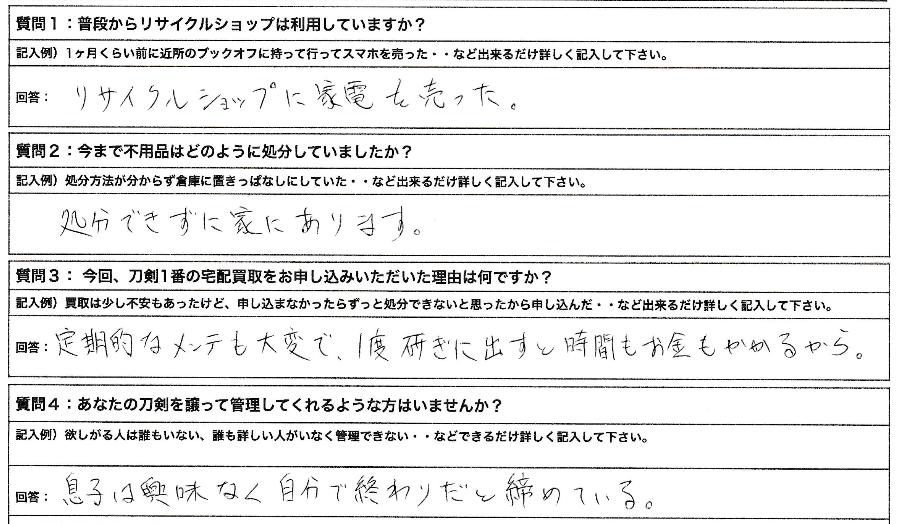 質問１：普段からリサイクルショップは利用していますか？
記入例）１ヶ月くらい前に近所のブックオフに持って行ってスマホを売った・・など出来るだけ詳しく記入して下さい。
回答： リサイクルショップに家電を売った。
質問２：今まで不用品はどのように処分していましたか？
記入例）処分方法が分からず倉庫に置きっぱなしにしていた・・など出来るだけ詳しく記入して下さい。
処分できずに家にあります。
質問３： 今回、刀剣1番の宅配買取をお申し込みいただいた理由は何ですか？
記入例）買取は少し不安もあったけど、申し込まなかったらずっと処分できないと思ったから申し込んだ・・など出来るだけ詳しく記入して下さい。
回答： 定期的なメンテも大変で、1度研ぎに出すと時間もお金もかかるから。
質問４：あなたの刀剣を譲って管理してくれるような方はいませんか？
記入例）欲しがる人は誰もいない、誰も詳しい人がいなく管理できない・・などできるだけ詳しく記入して下さい。
回答： 息子は興味なく自分で終わりだと締めている。